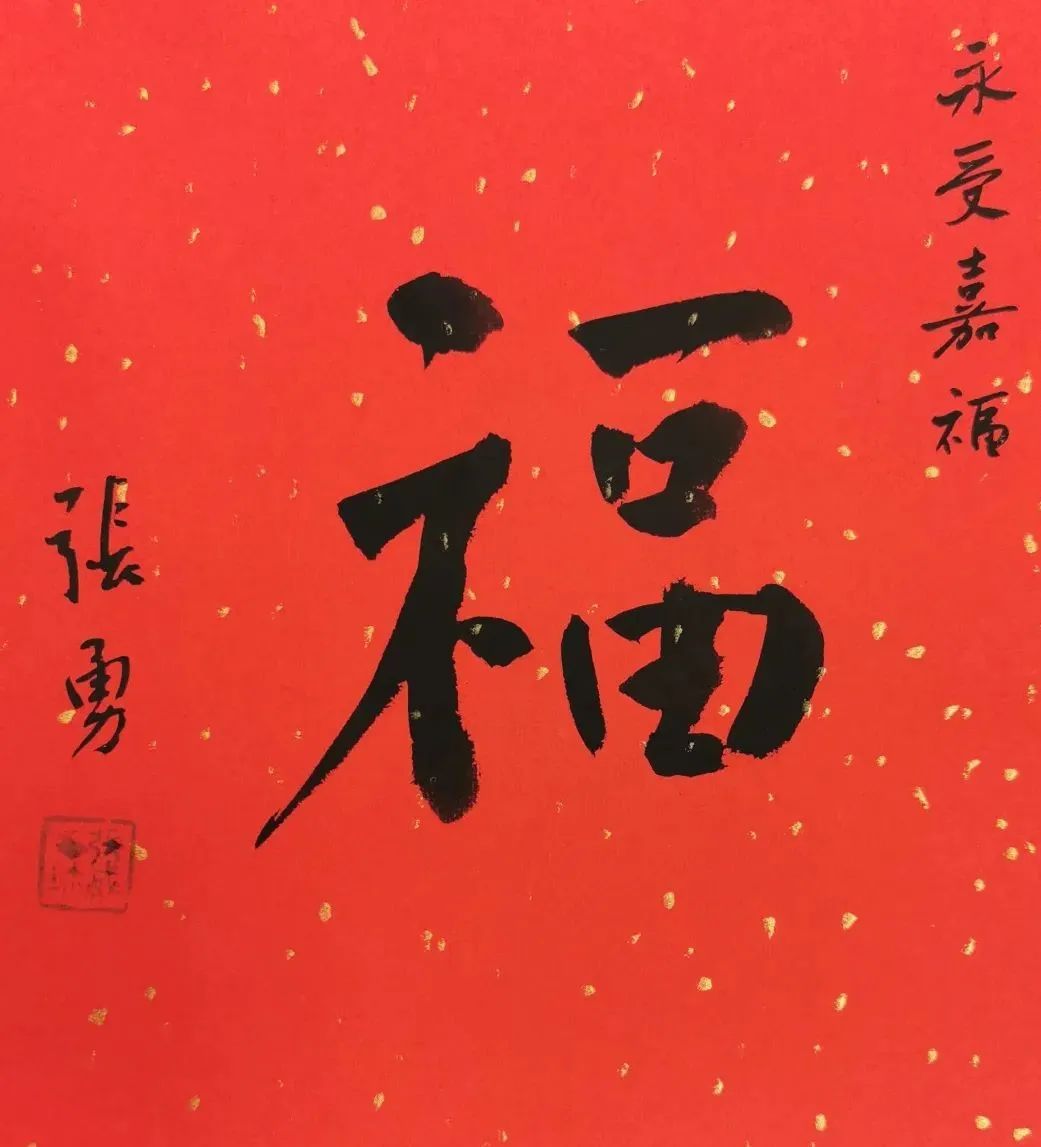 永受嘉福
福
張勇